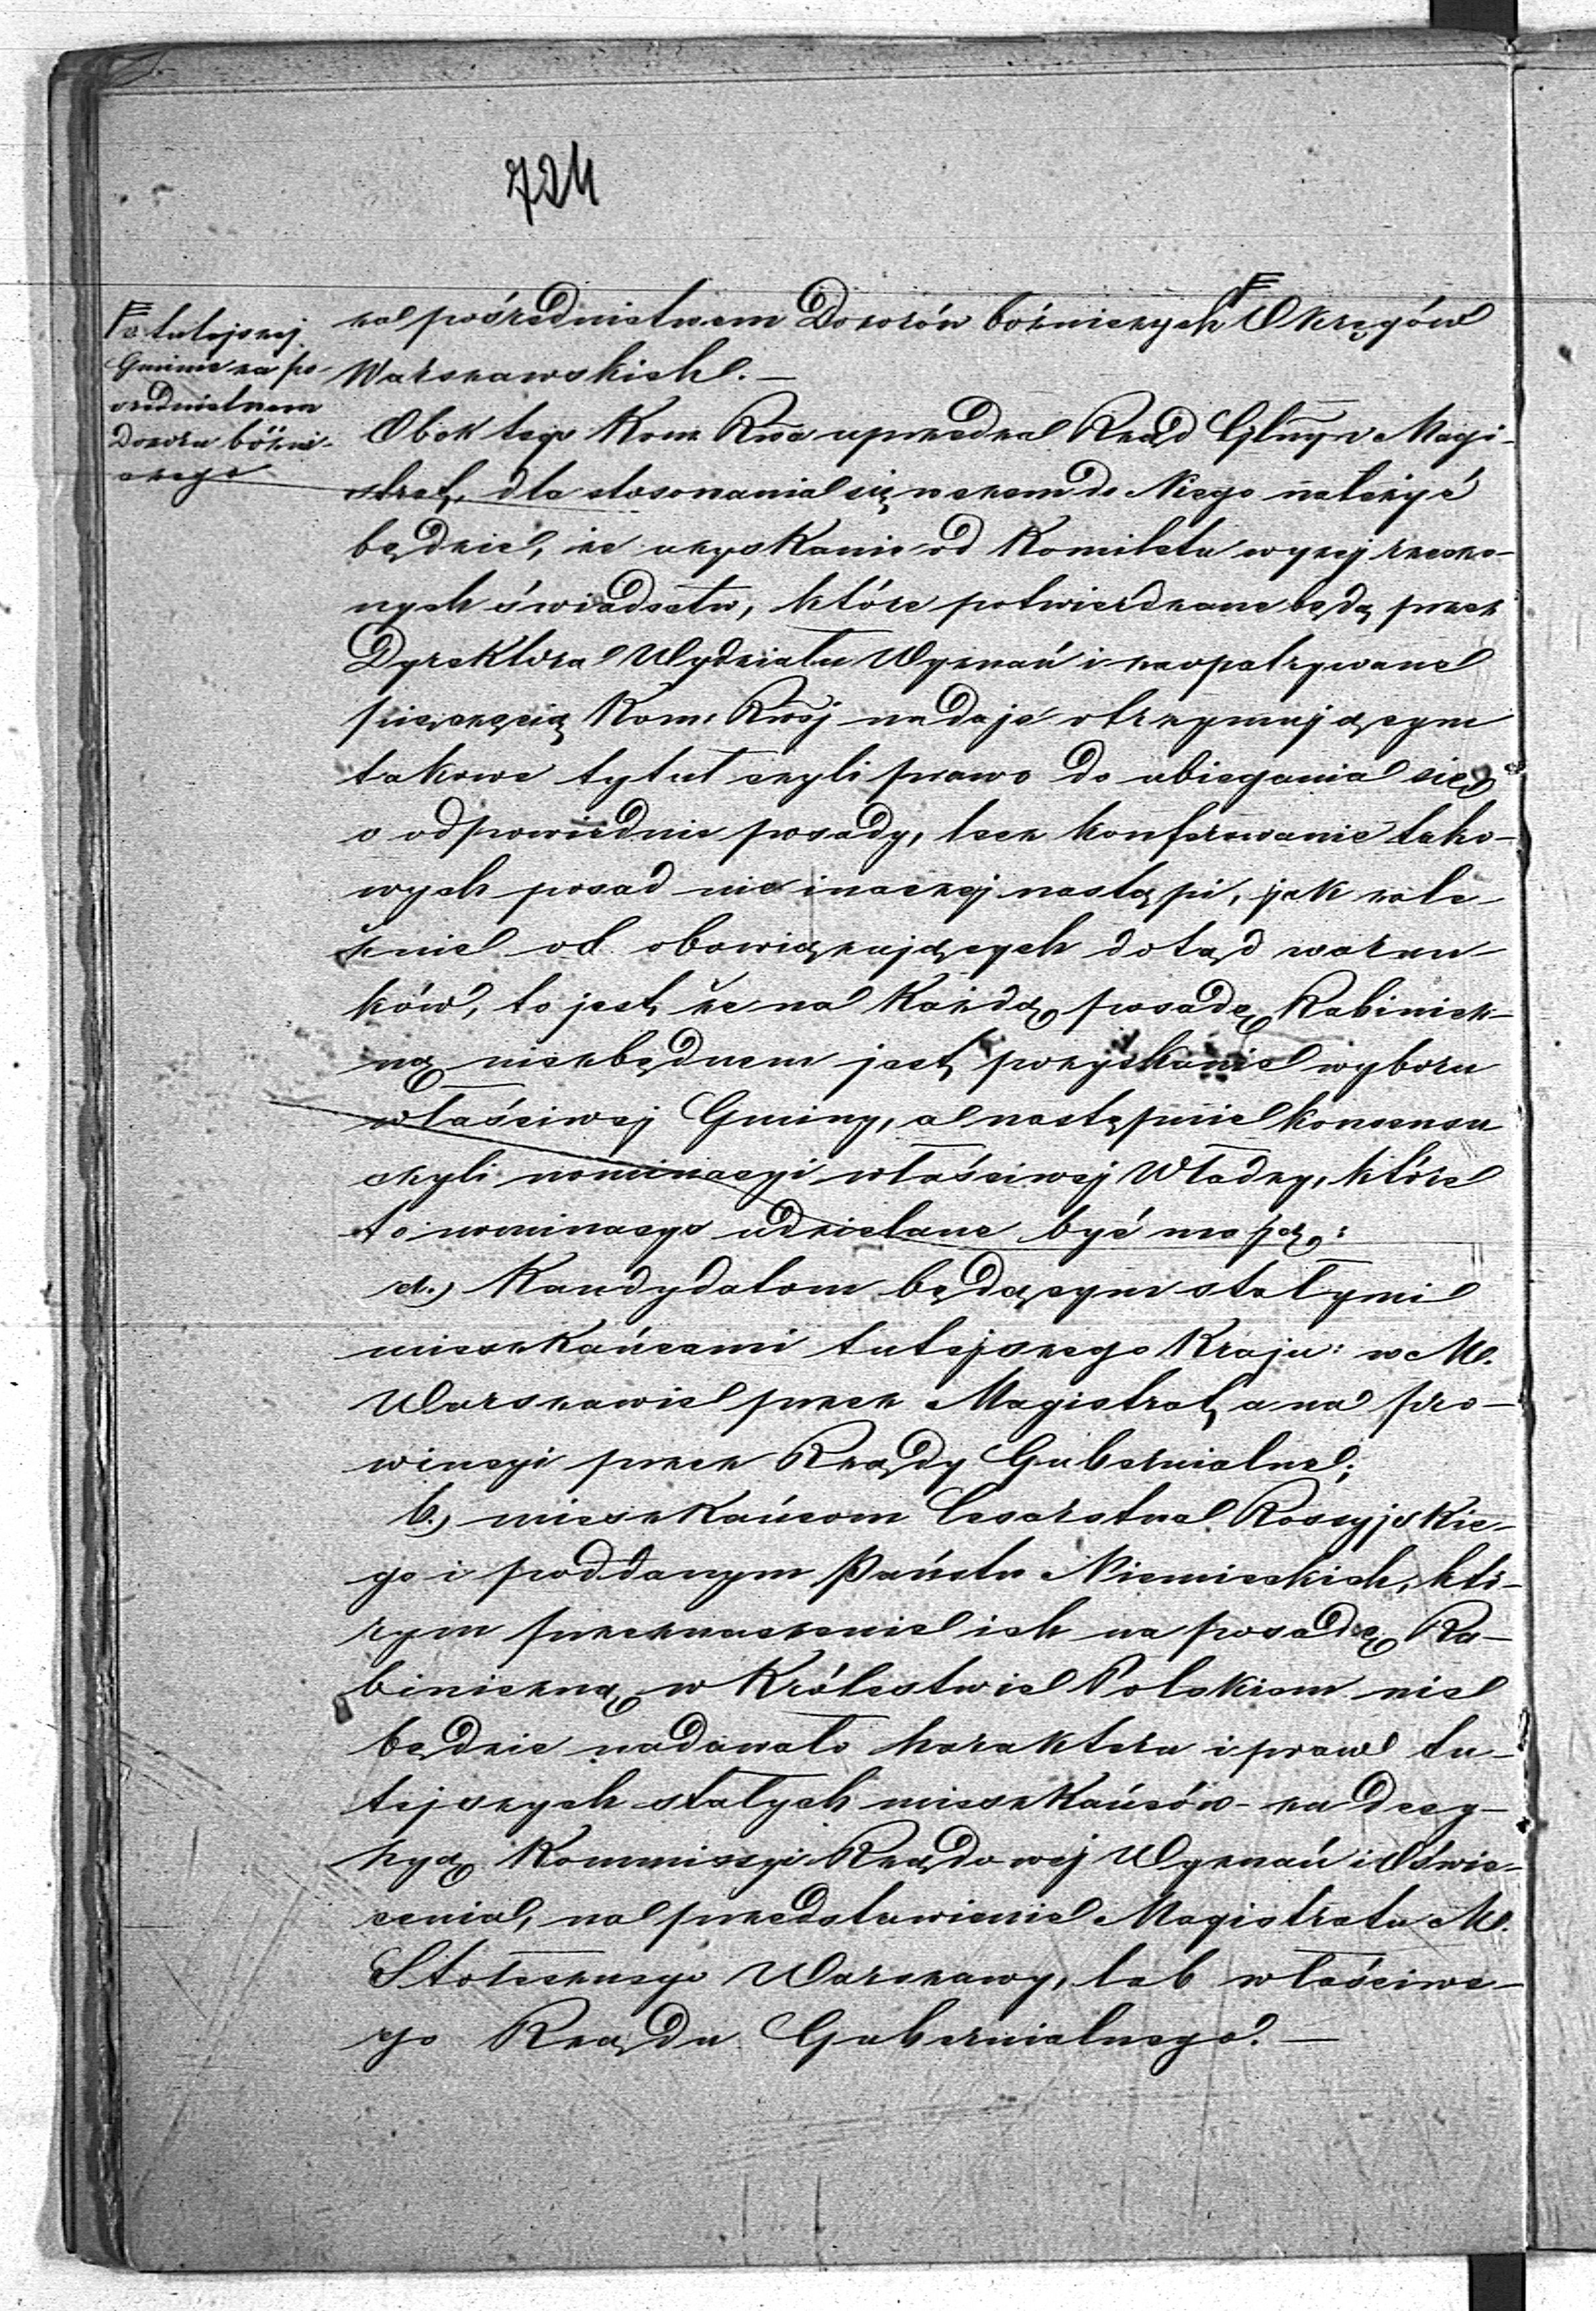 724
F a tutejszej
Gminie za po-
srednictwem
Dozoru bóżni-
cznego
za pośrednictwem Dozorów bóżniczych F Okręgów
Warszawskich. —
Obok tego Kom Rwa uprzedza Rząd Glny Magi-
strat, dla stosowania się w czem do Niego należyć
będzie, że uzyskanie od Komitetu wyżej rzeczo-
nych świadectw, które potwierdzane będą przez
Dyrektora Wydziału Wyznań i zaopatrywane
pieczęcią Kom: Rwej nadaje otrzymującym
takowe tytuł czyli prawo do ubiegania się
o odpowiednie posady, lecz konferowanie tako-
wych posad nie inaczej nastąpi, jak zale-
żnie od obowiązujących dotąd warun-
ków, to jest, że na każdą posadę Rabinicz-
ną niezbędnem jest, pozyskanie wyboru
właściwej Gminy, a następnie konsensu
czyli nominacyi właściwej Władzy, które
to nominacye udzielane być mają:
a.) Kandydatom będącym stałymi
mieszkańcami tutejszego Kraju: w M.
Warszawie przez Magistrat, a na pro-
wincyi przez Rządy Gubernialne;
b.) mieszkańcom Cesarstwa Rossyjskie-
go i poddanym Państw Niemieckich, któ-
rym przeznaczenie ich na posadę Ra-
biniczną w Królestwie Polskiem nie
będzie nadawało harakteru i praw tu-
tejszych stałych mieszkańców - za decy-
zyą Kommissyi Rządowej Wyznań i Oświe-
cenia, na przedstawienie Magistratu M.
Stołecznego Warszawy, lub właściwe-
go Rządu Gubernialnego. —